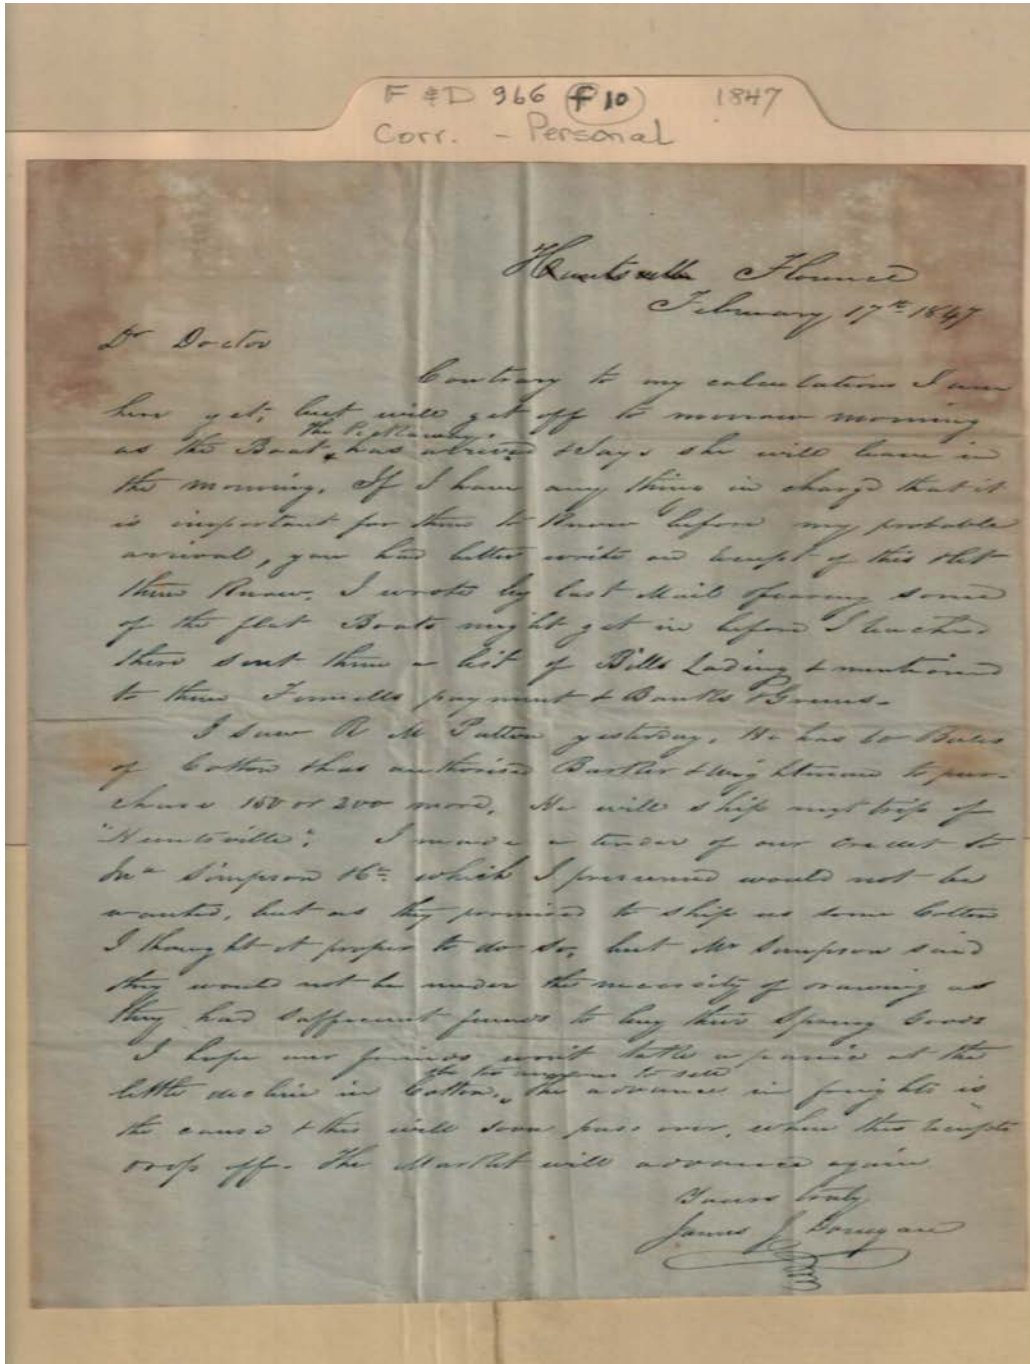 F & D 966 f 10 1847
Corr. - Personal
Huntsville Florence
February 17th 1847
Dr Doctor
Contrary to my calculations I am
here yet, but will get off to morrow morning
the
as the Boat has arrived & says she will leave in
the morning. If I have any thing in charge that it
is important for them to Know before my probable
arrival, you had better write on receipt of this & let
them Know. I wrote by last Mail fearing some
of the flat Boats might get in before I reached
there sent them a list of Bills Lading & mentioned
to them payment & Banks
I saw R M Patton yesterday, He has 60 Bales
of Cotton & has authorised Barker & Wightman to pur-
chase 150 or 200 more. He will ship next trip of
"Huntsville". I made a tender of our credit to
Jno Simpson & Co. which I presumed would not be
wanted, but as they promised to ship us some Cotton
I thought it proper to do so, but Mr Simpson said
they would not be under the necessity of drawing as
they had sufficient funds to buy their Spring Goods
I hope our friends won't take a panic at the
& be too anxious to sell
little decline in Cotton, the advance in freights is
the cause & this will soon pass over, when this receipts
drop off. The Market will advance again
Yours truly
James J Donegan